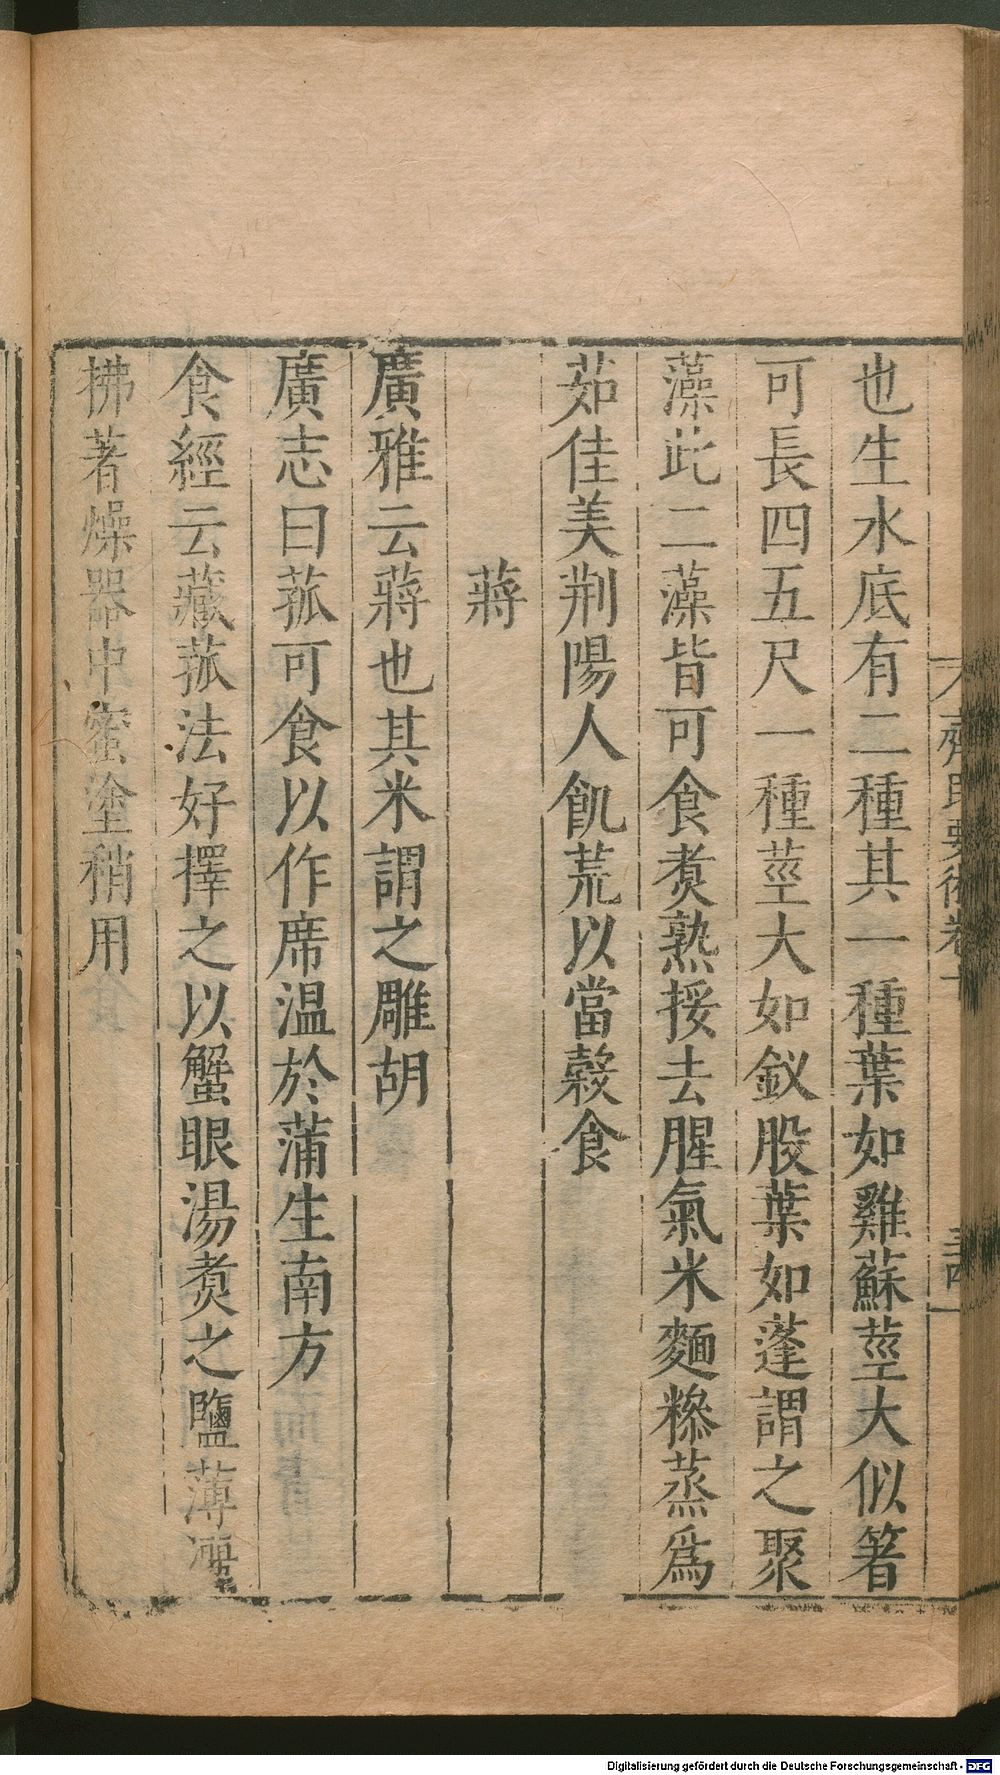 齊民要術卷十
三四
也生水底有二種其一種葉如雞蘇莖大似箸
可長四五尺一種莖大如釵股葉如蓬謂之聚
藻此二藻皆可食煑熟挼去腥氣米麵糝蒸爲
茹佳美荆陽人飢荒以當穀食
蔣
廣雅云蔣也其米謂之雕胡
廣志曰菰可食以作席温於蒲生南方
食經云藏菰法好擇之以蟹眼湯煑之鹽薄
拂著燥器中蜜塗稍用
Digitalisierung gefördert durch die Deutsche Forschungsgemeinschaft - DFG